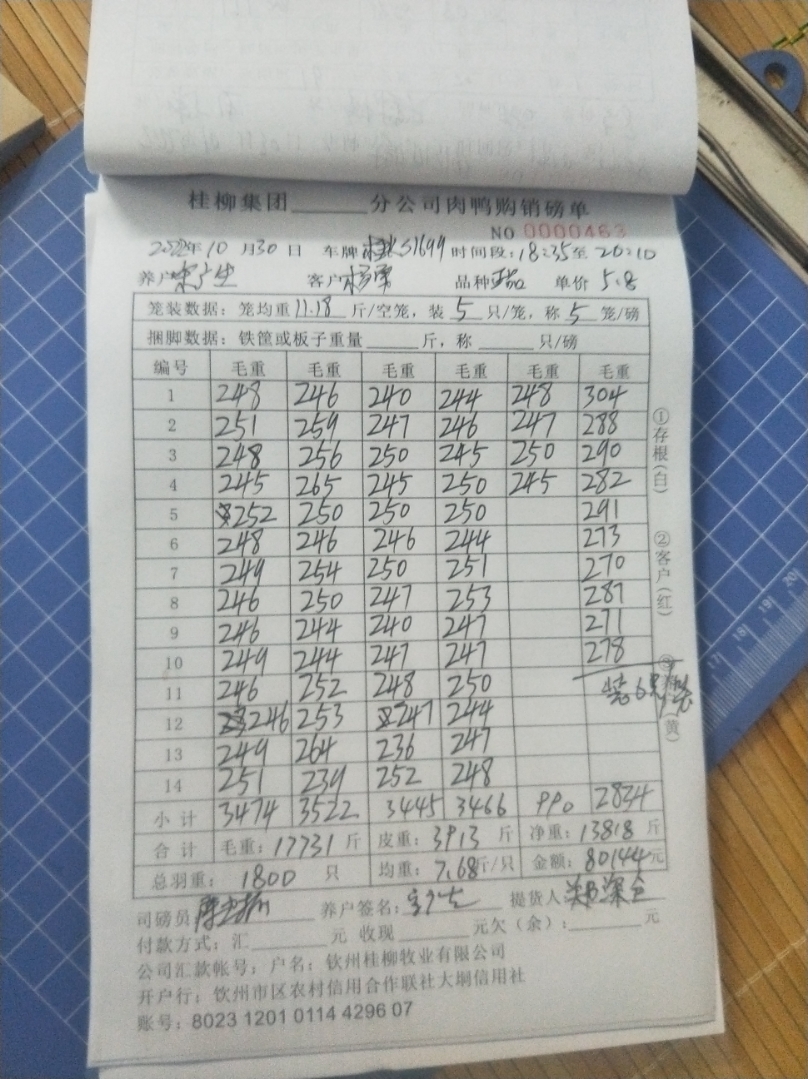 桂柳集团______分公司肉鸭购销磅单
NO 0000463
2022年10月30日 车牌 S1699 时间段:18:35至20:10
养户 客户 品种 单价 5.8
笼装数据: 笼均重 11.18 斤/空笼, 装 5 只/笼, 称 5 笼/磅
捆脚数据: 铁筐或板子重量______斤, 称______只/磅
编号 毛重 毛重 毛重 毛重 毛重 毛重
1 248 246 240 244 248 304
2 251 259 247 246 247 288
3 248 256 250 245 250 290
4 245 265 245 250 245 282
5 252 250 250 250 291
6 248 246 246 244 273
7 249 254 250 251 270
8 246 250 247 253 287
9 246 244 240 247 271
10 249 244 247 247 278
11 246 252 248 250 装6只/笼
12 246 253 247 244
13 249 264 236 247
14 251 239 252 248
小计 3474 3522 3445 3466 990 2834
合计 毛重: 17731 斤 皮重: 3913 斤 净重: 13818 斤
总羽重: 1800 只 均重: 7.68斤/只 金额: 80144元
司磅员 养户签名: 提货人
付款方式: 汇______元 收现______元欠(余):______元
公司汇款帐号; 户名: 钦州桂柳牧业有限公司
开户行: 钦州市区农村信用合作联社大垌信用社
账号: 8023 1201 0114 4296 07
①存根(白)
②客户(红)
(黄)